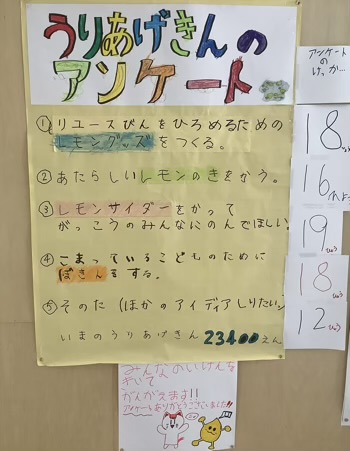 うりあげきんの
アンケート
アンケート
の
けっか…
① リユースびんをひろめるための
レモングッズをつくる。
18
② あたらしいレモンのきをかう。
16
③ レモンサイダーをかって
がっこうのみんなにのんでほしい
19
④ こまっているこどものために
ぼきんをする。
18
⑤ そのた (ほかのアイディアしりたい)
12
いまのうりあげきん 23400えん
みんなのいけんを
きいて
かんがえます!!
アンケートありがとうございました!!